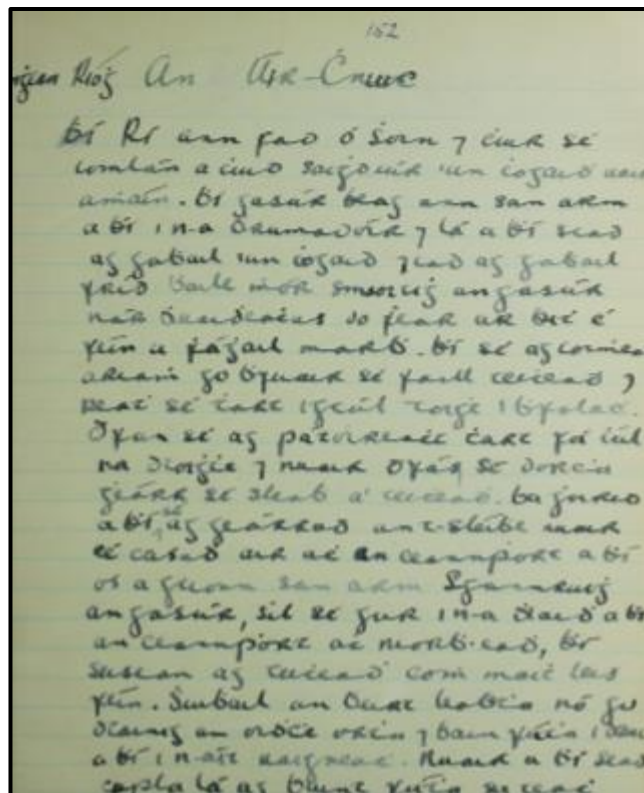 152
Ríoġ An
Ḃí Rí ann fad ó ṡoin ⁊ ċuir sé
comlán a ċuid saiġdiúir 'un coġaiḋ
aṁáin. Ḃí gasúr beag ann san arm
a ḃí i n-a ḋrumadóir ⁊ lá a ḃí siad
ag gaḃail 'un coġaiḋ ⁊ iad ag gaḃail
fríd ḃaile mór smaoitiġ an gasúr
nár do ḟear ar biṫ é
féin a ḟáġail marḃ. Ḃí sé
ariaṁ go ḃfuair sé faill ⁊
sé ṫart i gcúl toiġe i ḃfolaċ.
Ḋ'fan sé ag ṫart fá ċúl
na ⁊ nuair d'ḟás sé dorċa
ġearr sé sliaḃ a' teiċead. Ba ġoirid
a ḃí sé ag gearraḋ an t-sléiḃe nuair
casaḋ air aċ an ceannport a ḃí
os a ġcionn san arm Sgannruiġ
an gasúr, síl sé gur i n-a ḋiaiḋ a ḃí
an ceannport aċ níorḃ eaḋ, ḃí
seisean ag teiċeaḋ coṁ maiṫ leis
féin. Ṡiuḃail an ḃeirt leoḃṫa nó go
dtáinig an oiḋċe orṫu ⁊ ḃain fúṫa i
a ḃí i n-áit uaigneaċ. Nuair a ḃí siad
lá ag fúṫa